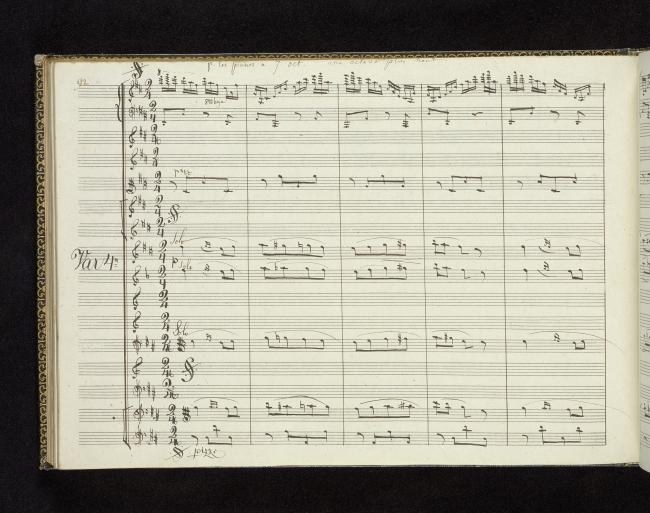 92
p. les pianos a 7 oct. une octave plus haut
pizz
Solo
Var 4e
p Solo
Solo
pizz